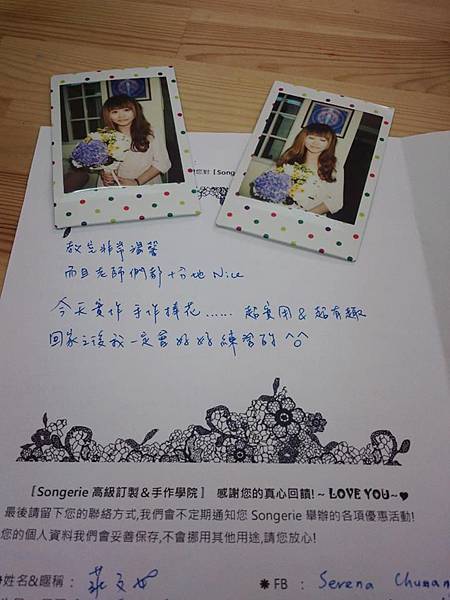 您對 [Song
教室非常溫馨
而且老師們都十分地 Nice
今天實作 手作捧花...... 超實用 & 超有趣
回家之後我一定會好好練習的 ^O^
[ Songerie 高級訂製&手作學院 ] 感謝您的真心回饋!~ LOVE YOU~♥
最後請留下您的聯絡方式,我們會不定期通知您 Songerie 舉辦的各項優惠活動!
您的個人資料我們會妥善保存,不會挪用其他用途,請您放心!
姓名&暱稱: ❋ FB : Serena